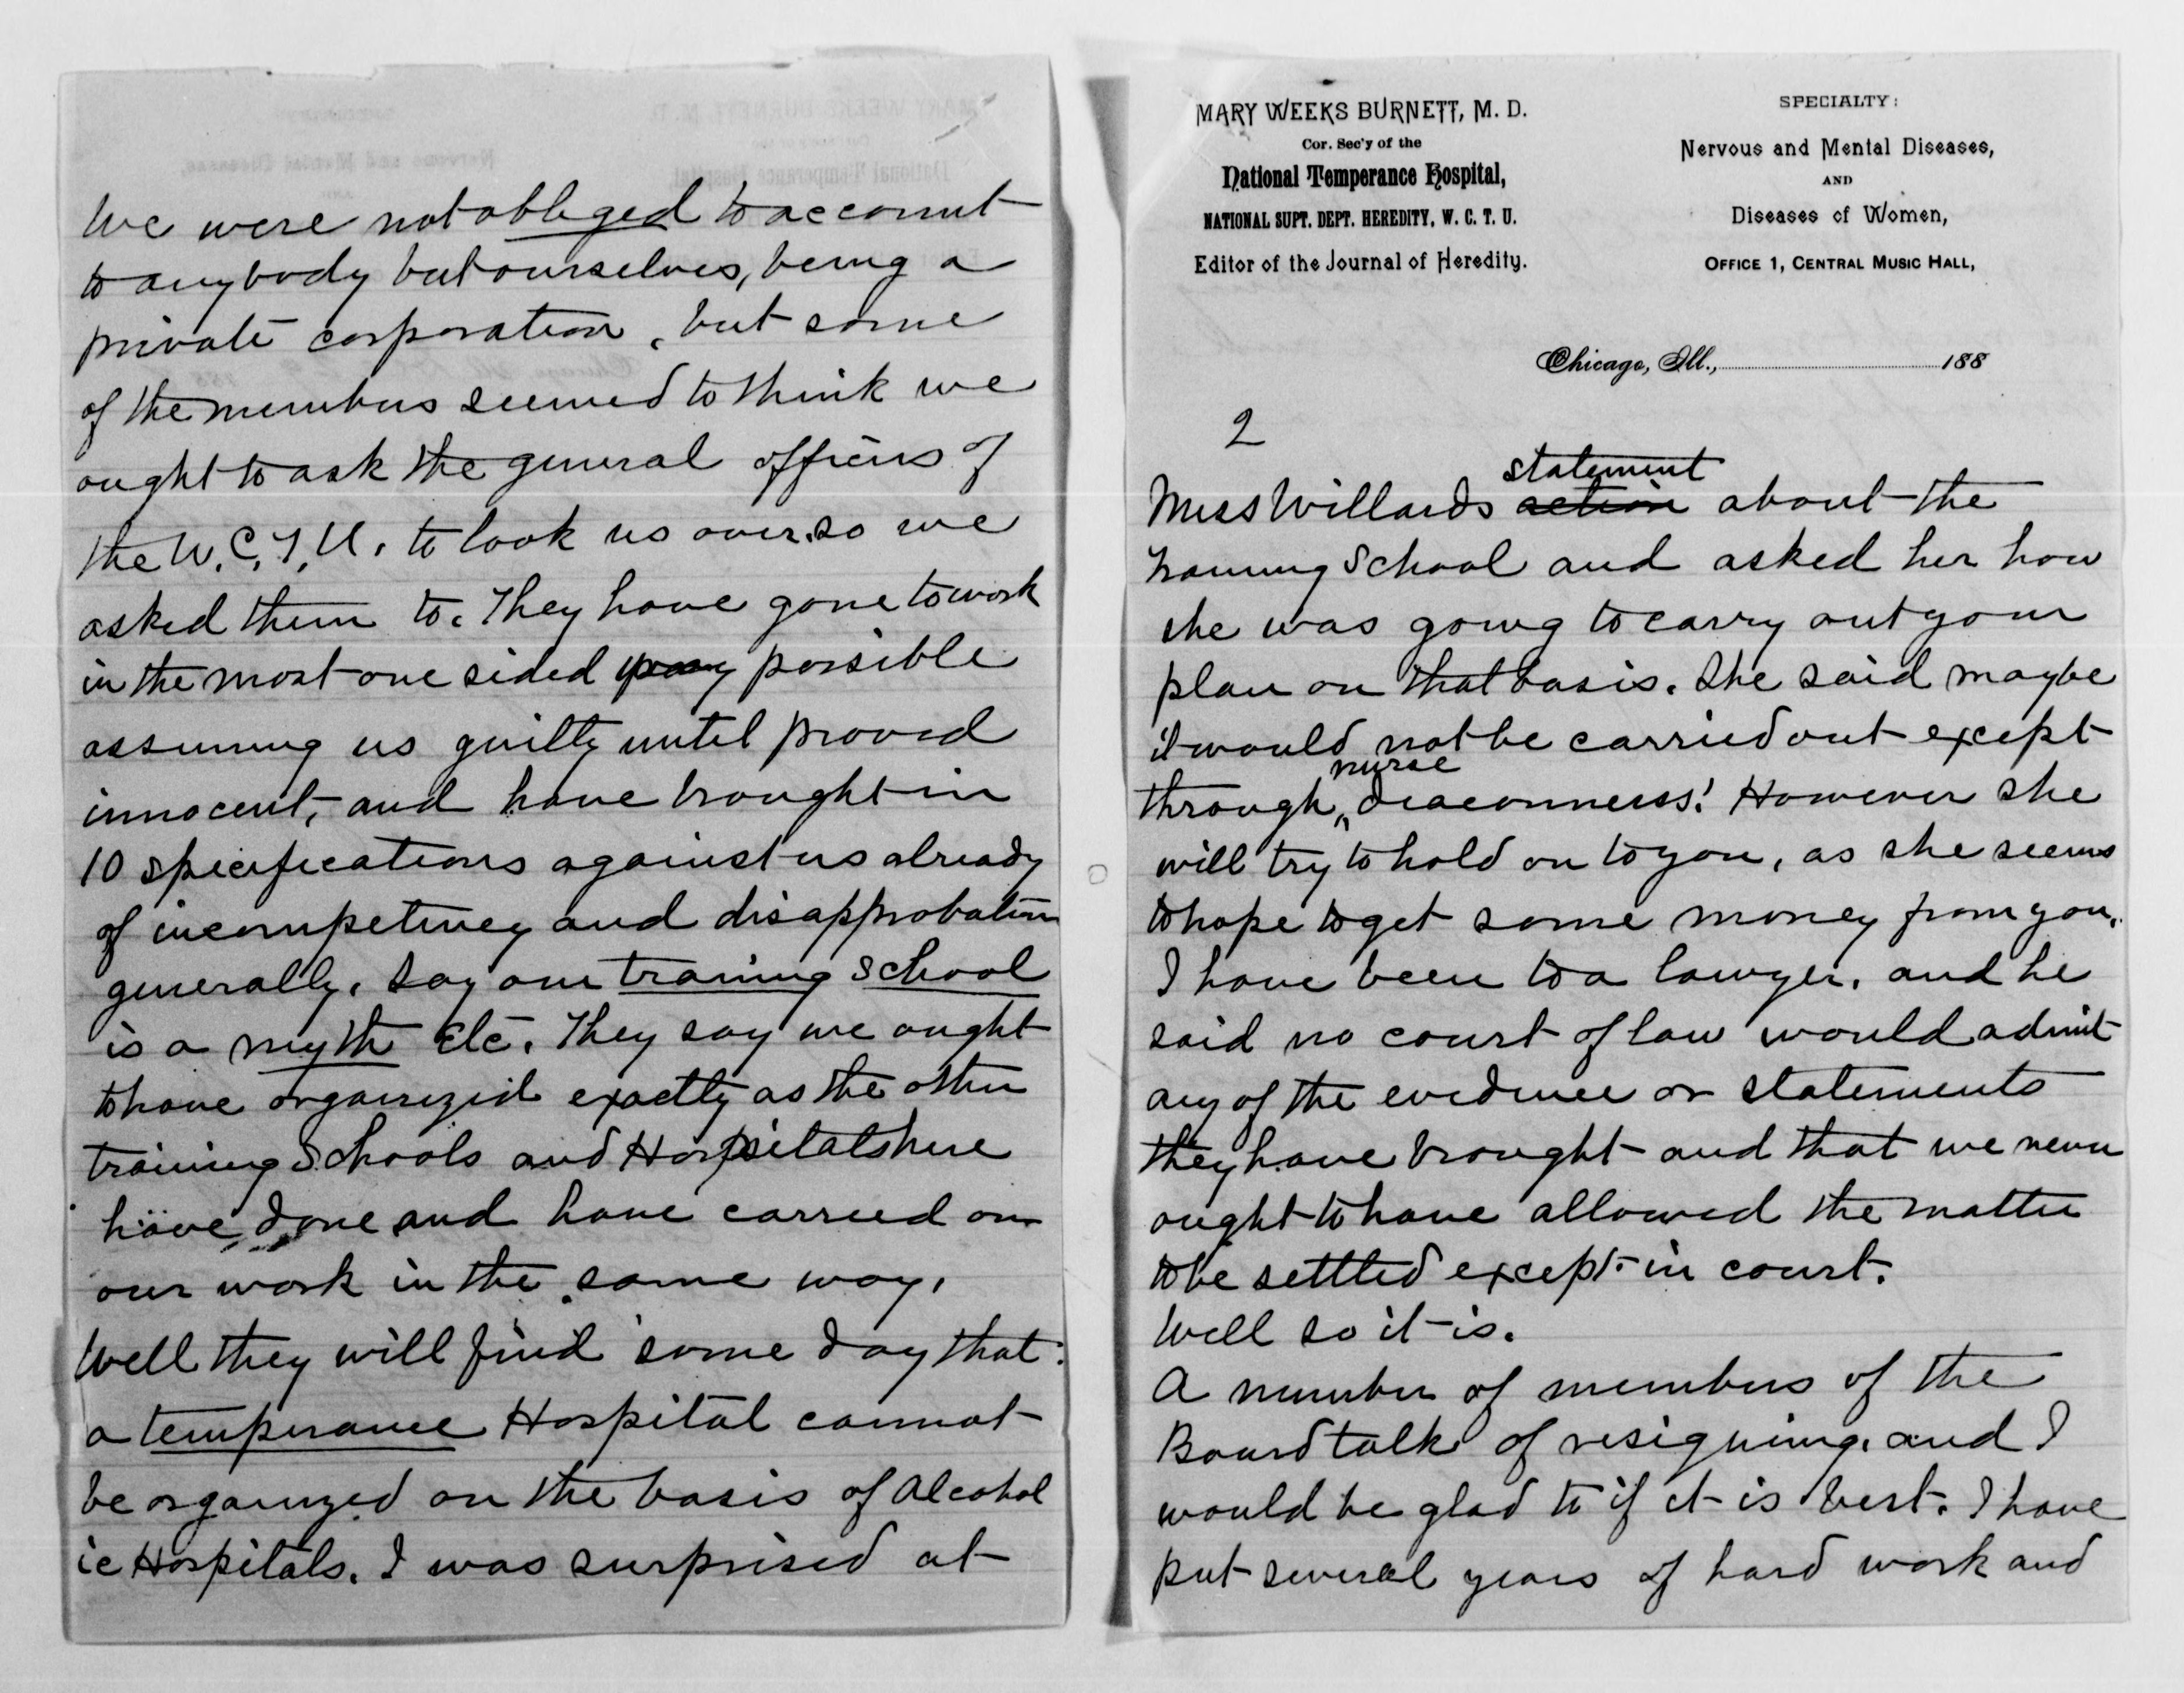 We were not obliged to account
to anybody but ourselves, being a
private corporation, but some
of the members seemed to think we
ought to ask the general officers of
the W.C.T.U. to look us over, so we
asked them to. They have gone to work
in the most one sided way possible
assuming us guilty until proved
innocent, and have brought in
10 specifications against us already
of incompetency and disapprobation
generally. Say our training school
is a myth etc. They say we ought
to have organized exactly as the other
training Schools and Hospitals here
have done and have carried on
our work in the same way.
Well they will find some day that
a temperance Hospital cannot
be organized on the basis of Alcohol
ic Hospitals. I was surprised at
MARY WEEKS BURNETT, M. D.
Cor. Sec'y of the
National Temperance Hospital,
NATIONAL SUPT. DEPT. HEREDITY, W. C. T. U.
Editor of the Journal of Heredity.
SPECIALTY:
Nervous and Mental Diseases,
AND
Diseases of Women,
OFFICE 1, CENTRAL MUSIC HALL,
Chicago, Ill., 188
2
statement
Miss Willards action about the
Training School and asked her how
she was going to carry out your
plan on that basis. She said maybe
it would not be carried out except
nurse
through deaconness! However she
will try to hold on to you, as she seems
to hope to get some money from you.
I have been to a lawyer, and he
said no court of law would admit
any of the evidence or statements
they have brought and that we never
ought to have allowed the matter
to be settled except in court.
Well so it is.
A number of members of the
Board talk of resigning, and I
would be glad to if it is best. I have
put several years of hard work and